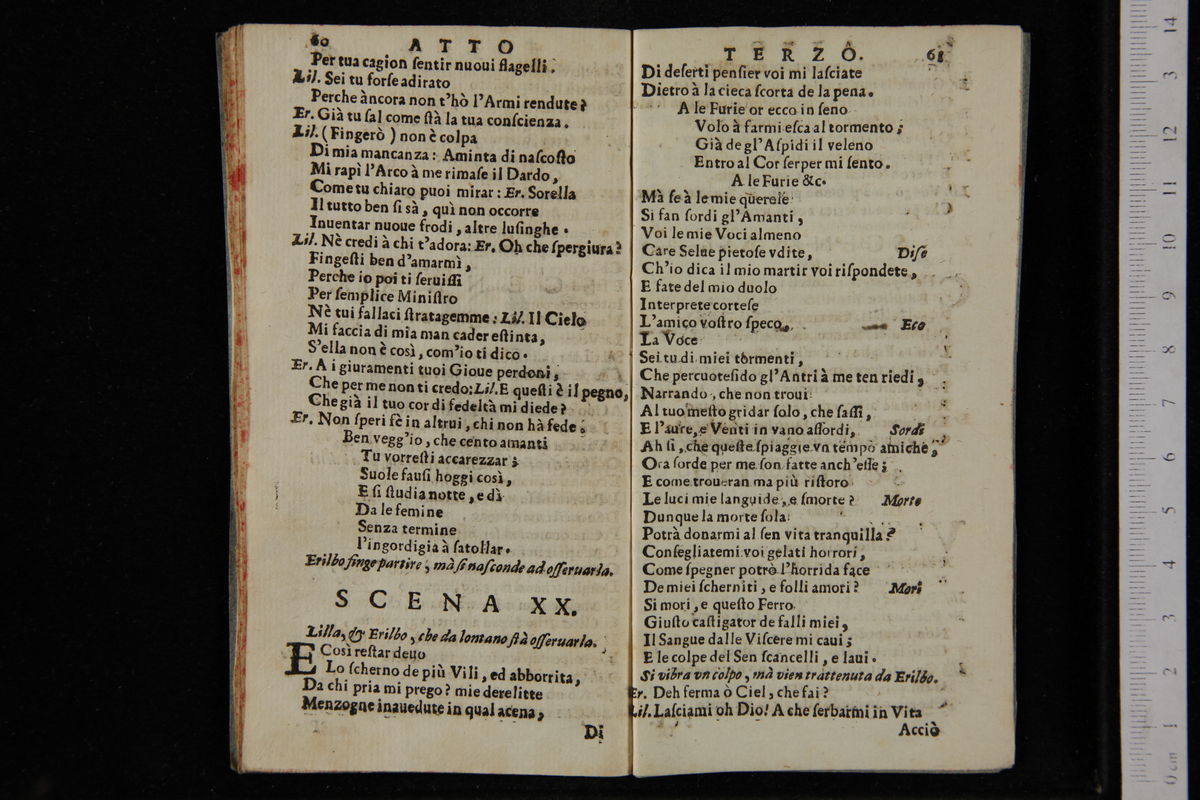 60 ATTO
Per tua cagion ſentir nuoui flagelli.
Lil. Sei tu forſe adirato
Perche àncora non t'hò l'Armi rendute?
Er. Già tu ſal come ſtà la tua conſcienza.
Lil. (Fingerò) non è colpa
Di mia mancanza: Aminta di naſcoſto
Mi rapì l'Arco à me rimaſe il Dardo,
Come tu chiaro puoi mirar: Er. Sorella
Il tutto ben ſi sà, quì non occorre
Inuentar nuoue frodi, altre luſinghe.
Lil. Nè credi à chi t'adora: Er. Oh che ſpergiura?
Fingeſti ben d'amarmì,
Perche io poi ti ſeruiſſi
Per ſemplice Miniſtro
Nè tui fallaci ſtratagemme: Lil. Il Cielo
Mi faccia di mia man cader eſtinta,
S'ella non è così, com'io ti dico.
Er. A i giuramenti tuoi Gioue perdoni,
Che per me non ti credo: Lil. E queſti è il pegno,
Che già il tuo cor di fedeltà mi diede?
Er. Non ſperi fè in altrui, chi non hà fede.
Ben vegg'io, che cento amanti
Tu vorreſti accarezzar;
Suole fauſi hoggi così,
E ſi ſtudia notte, e dì
Da le femine
Senza termine
l'ingordigia à ſatollar.
Erilbo finge partire, mà ſi naſconde ad oſſeruarla.
SCENA XX.
Lilla, & Erilbo, che da lontano ſtà oſſeruarla.
E Così reſtar deuo
Lo ſcherno de più Vili, ed abborrita,
Da chi pria mi prego? mie derelitte
Menzogne inauedute in qual acena,
Di
TERZO. 61
Di deſerti penſier voi mi laſciate
Dietro à la cieca ſcorta de la pena.
A le Furie or ecco in ſeno
Volo à farmi eſca al tormento;
Già de gl'Aſpidi il veleno
Entro al Cor ſerper mi ſento.
A le Furie &c.
Mà ſe à le mie querele
Si fan ſordi gl'Amanti,
Voi le mie Voci almeno
Care Selue pietoſe vdite, Diſe
Ch'io dica il mio martir voi riſpondete,
E fate del mio duolo
Interprete corteſe
L'amico voſtro ſpeco. Eco
La Voce
Sei tu di miei tormenti,
Che percuoteſido gl'Antri à me ten riedi,
Narrando, che non troui
Al tuo meſto gridar ſolo, che ſaſſi,
E l'aure, e Venti in vano aſſordi, Sordi
Ah ſi, che queſte ſpiaggie vn tempo amiche,
Ora ſorde per me ſon fatte anch'eſſe;
E come troueran ma più riſtoro
Le luci mie languide, e ſmorte? Morte
Dunque la morte ſola
Potrà donarmi al ſen vita tranquilla?
Conſegliatemi voi gelati horrori,
Come ſpegner potrò l'horrida face
De miei ſcherniti, e folli amori? Mori
Si mori, e queſto Ferro
Giuſto caſtigator de falli miei,
Il Sangue dalle Viſcere mi caui;
E le colpe del Sen ſcancelli, e laui.
Si vibra vn colpo, mà vien trattenuta da Erilbo.
Er. Deh ferma ò Ciel, che fai?
Lil. Laſciami oh Dio! A che ſerbarmi in Vita
Acciò